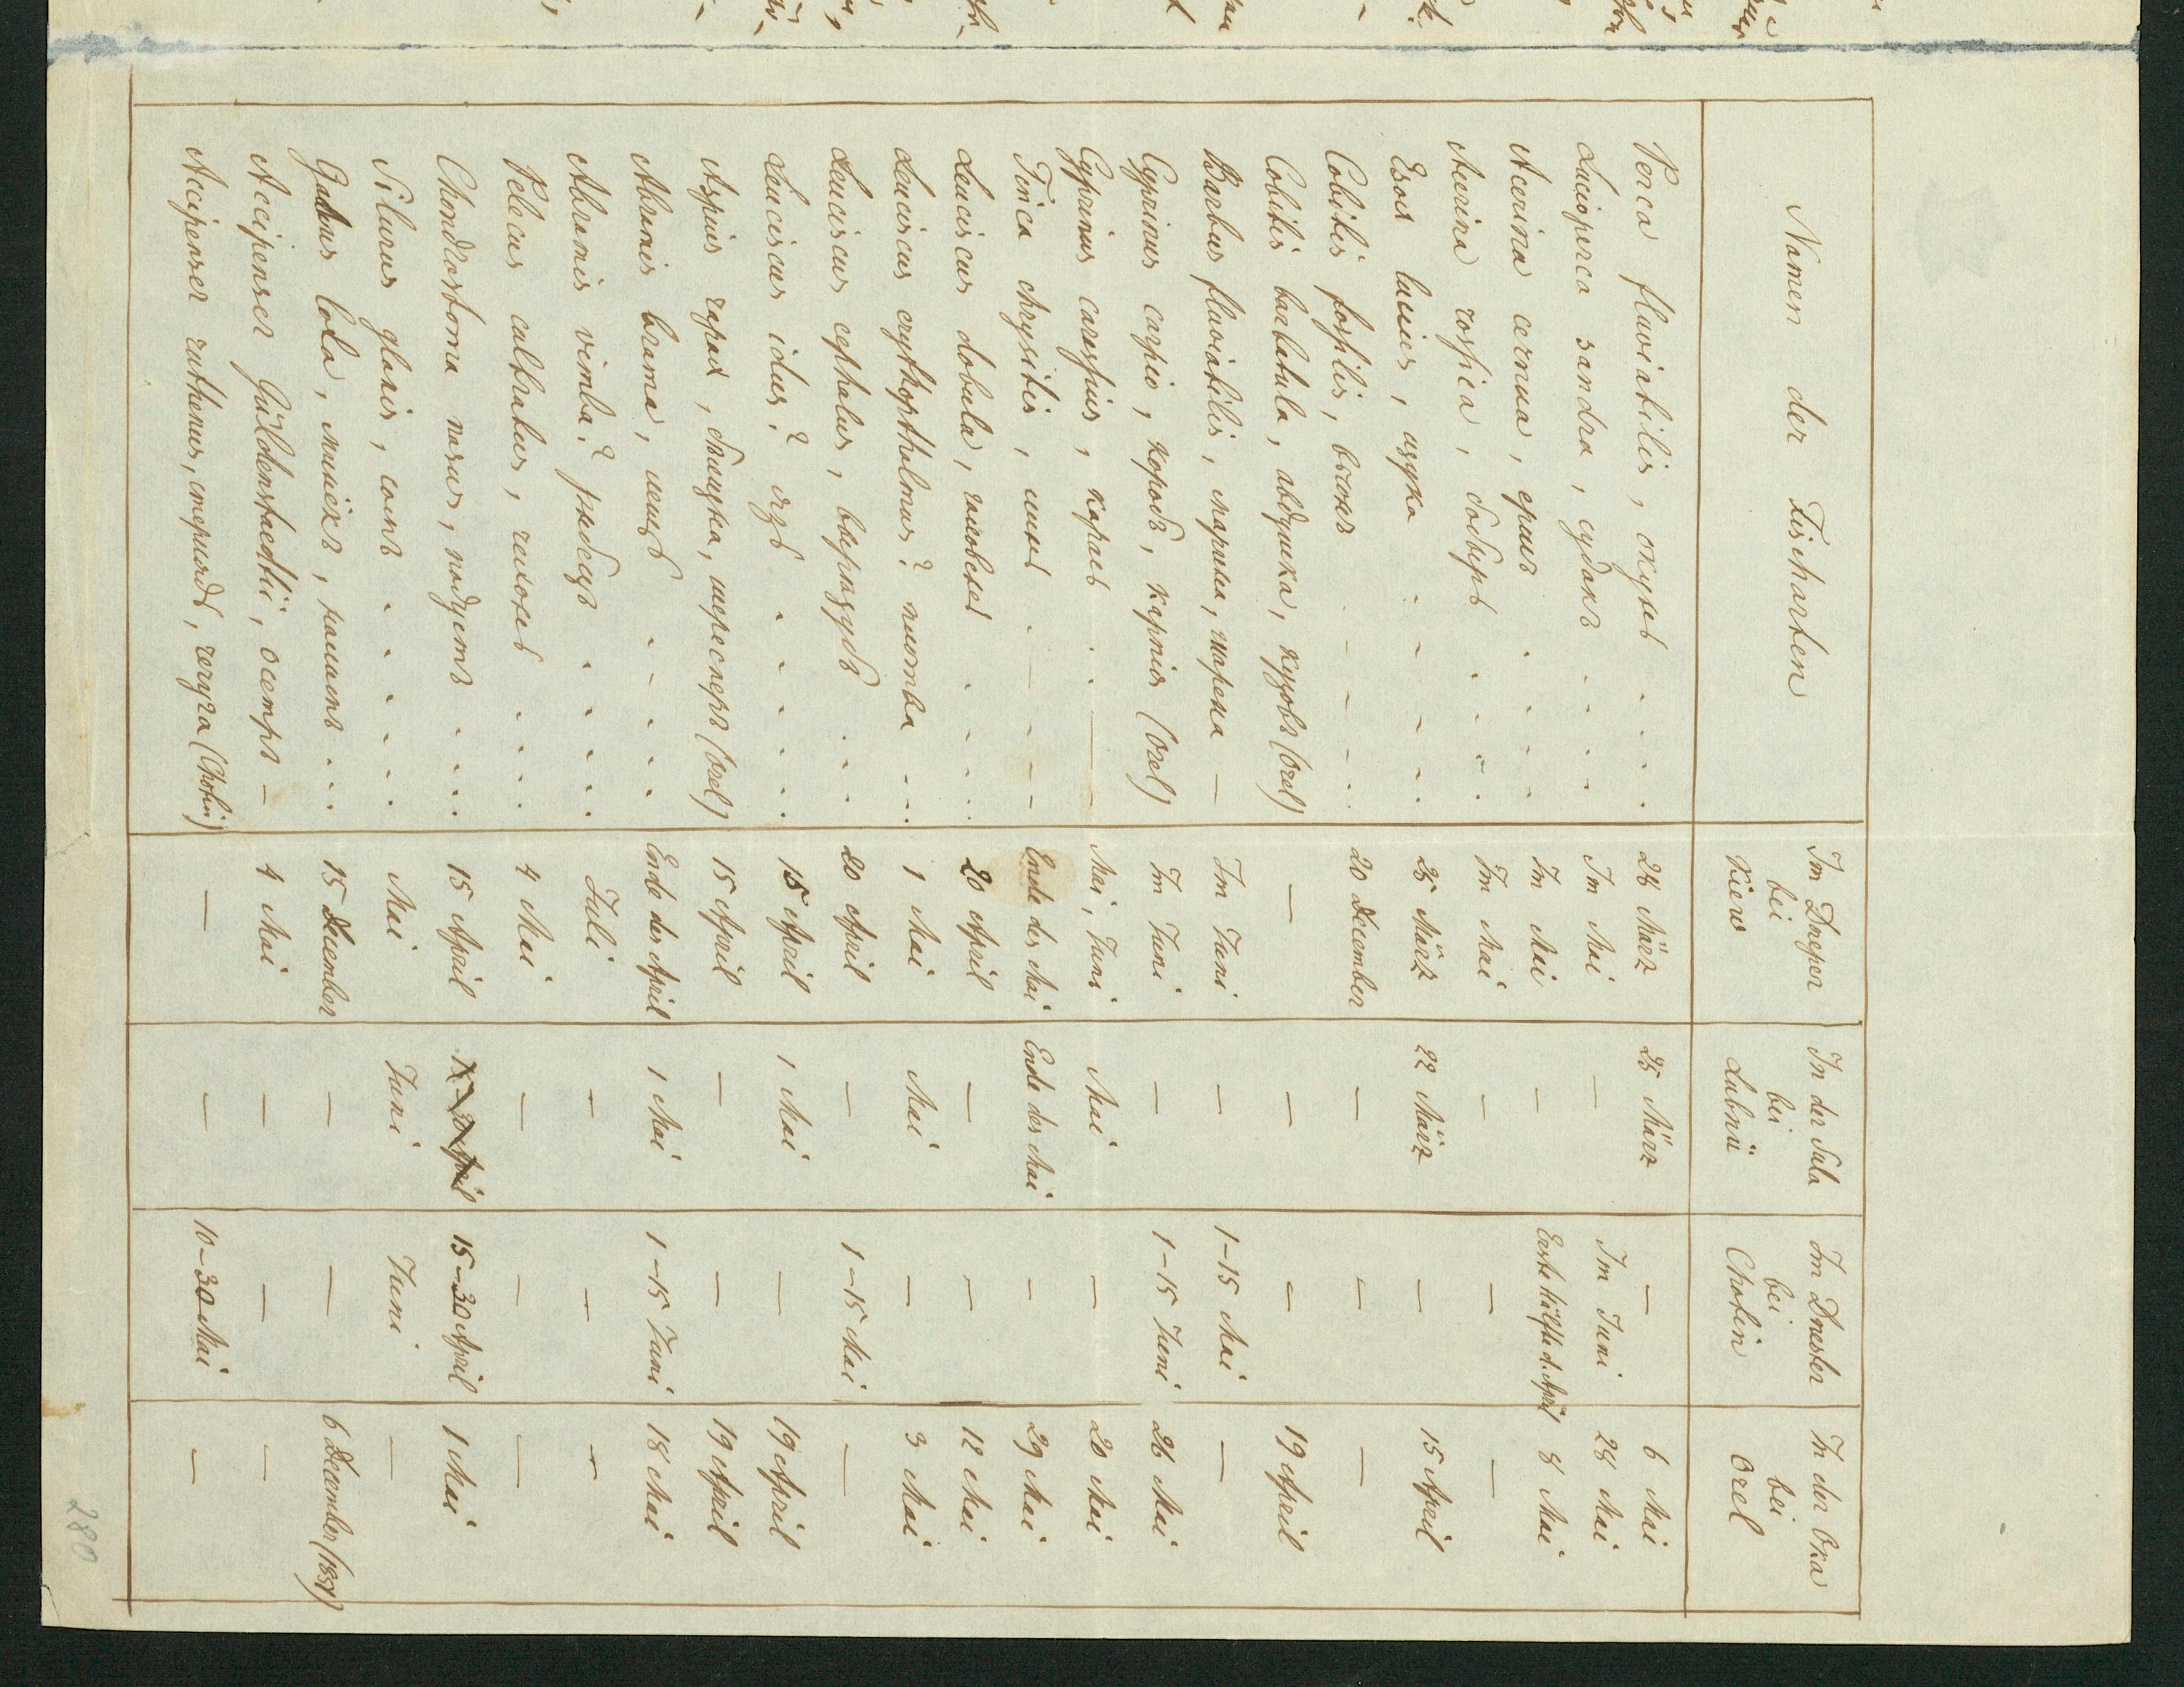 Namen der Fischarten | Im Dneper bei Kiew | In der Sula bei Lubnü | Im Dnester bei Chotin | In der Oka bei Orel
Perca fluviatilis, окунь . . . . | 28 März | 25 März | — | 6 Mai
Lucioperca sandra, судакъ . . . | Im Mai | — | Im Juni | 28 Mai
Acerina cernua, ершъ . . . | Im Mai | — | Erste Hälfte d. April | 8 Mai
Acerina rossica, бобырь . . . . | Im Mai | — | — | —
Esox lucius, щука . . . . | 25 März | 22 März | — | 15 April
Cobitis fossilis, вьюнъ . . . . | 20 December | — | — | —
Cobitis barbatula, авдюшка, кузовъ (Orel) | — | — | — | 19 April
Barbus fluviatilis, марина, марена — | Im Juni | — | 1–15 Mai | —
Cyprinus carpio, коропъ, карпія (Orel) | Im Juni | — | 1–15 Juni | 26 Mai
Cyprinus carassius, карась . . — — | Mai, Juni | Mai | — | 20 Mai
Tinca chrysitis, линь . — — — | Ende des Mai | Ende des Mai | — | 29 Mai
Leuciscus dobula, головень . . . . | 20 April | — | — | 12 Mai
Leuciscus erythropthalmus? плотва . . | 1 Mai | Mai | — | 3 Mai
Leuciscus cephalus, вырозубъ . . . | 20 April | — | 1–15 Mai | —
Leuciscus idus? язь . . . . . | 15 April | 1 Mai | — | 19 April
Aspius rapax, бѣлизна, шересперъ (Orel) | 15 April | — | — | 19 April
Abramis brama, лещь . . . . | Ende des April | 1 Mai | 1–15 Juni | 18 Mai
Abramis vimba? рыбецъ . . . . | Juli | — | — | —
Pelecus cultratus, чехонь . . . . | 4 Mai | — | — | —
Chondrostoma nasus, подустъ . . . . | 15 April | | 15–30 April | 1 Mai
Silurus glanis, сомъ . . . . . | Mai | Juni | Juni | —
Gadus lota, | 15 December | — | — | 6 December (1851)
Accipenser Güldenstaedtii, осетръ — | 4 Mai | — | — | —
Accipenser ruthenus, стерлядь, чечуга (Chotin) | — | — | 10–30 Mai | —
280